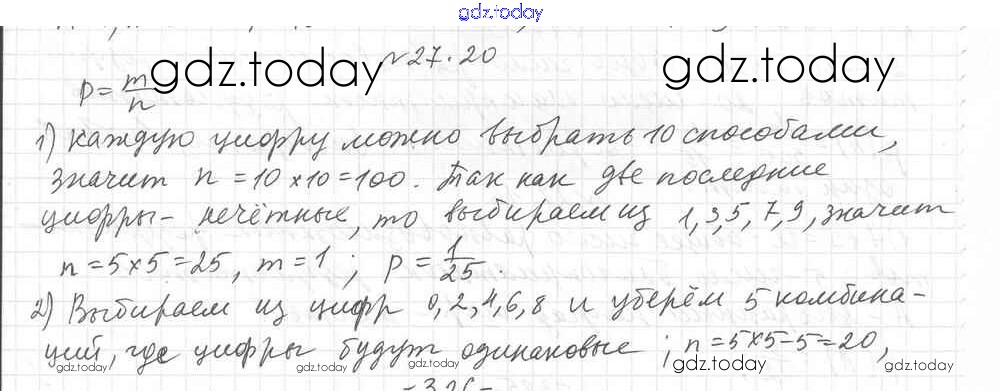 gdz.today
№27.20
P=m/n
gdz.today
gdz.today
1) каждую цифру можно выбрать 10 способами,
значит n=10×10=100. Так как две последние
цифры- нечётные, то выбираем из 1,3,5,7,9, значит
n=5×5=25, m=1; P=1/25.
2) Выбираем из цифр 0,2,4,6,8 и уберём 5 комбина-
ций, где цифры будут одинаковые; n=5×5-5=20,
gdz.today gdz.today gdz.today gdz.today gdz.today gdz.today gdz.today gdz.today